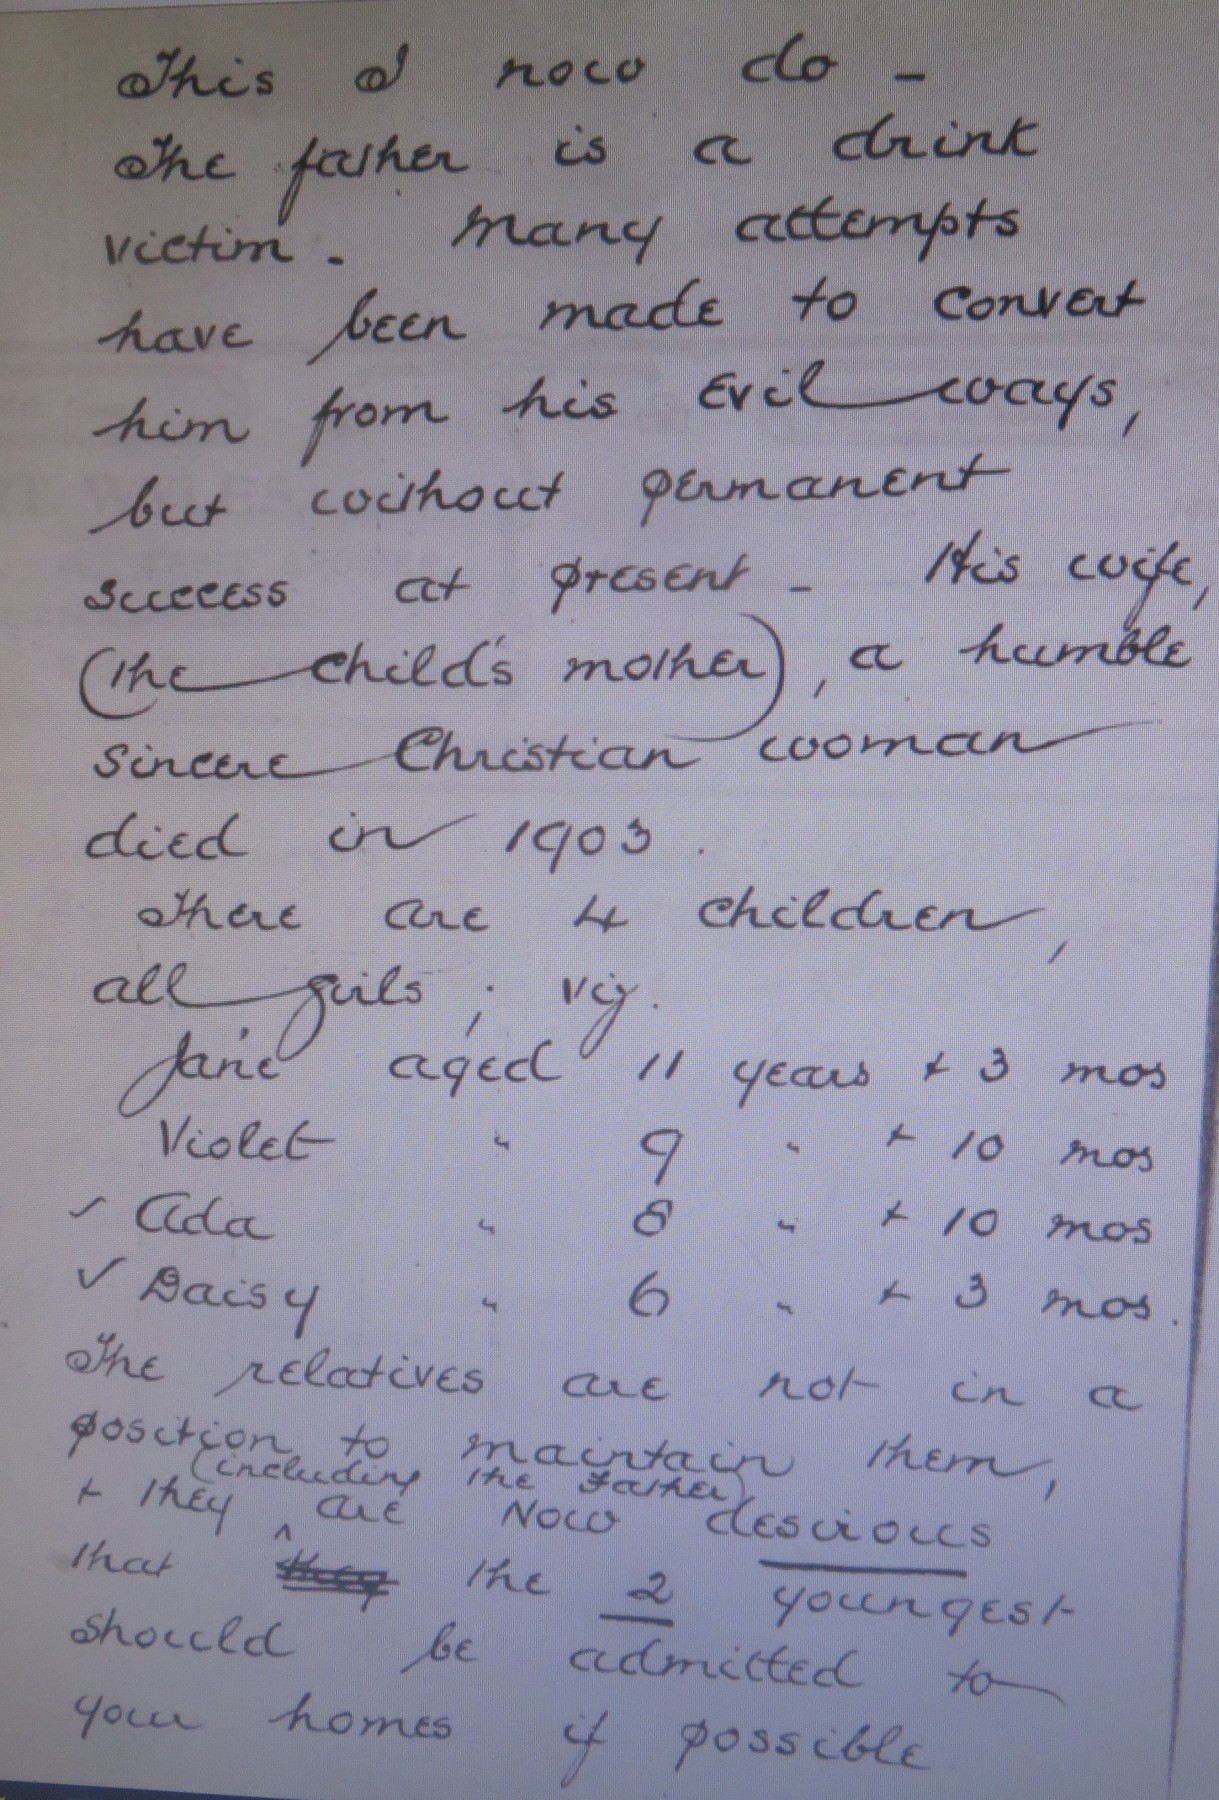 This I now do -
The father is a drink
victim. Many attempts
have been made to convert
him from his evil ways,
but without permanent
success at present - His wife,
(the child's mother), a humble
sincere Christian woman
died in 1903.
There are 4 children,
all girls; viz.
Jane aged 11 years + 3 mos
Violet " 9 " + 10 mos
✓ Ada " 8 " + 10 mos
✓ Daisy " 6 " + 3 mos.
The relatives are not in a
position to maintain them,
(including the father)
+ they ^ are now desirous
that they the 2 youngest
should be admitted to
your homes if possible